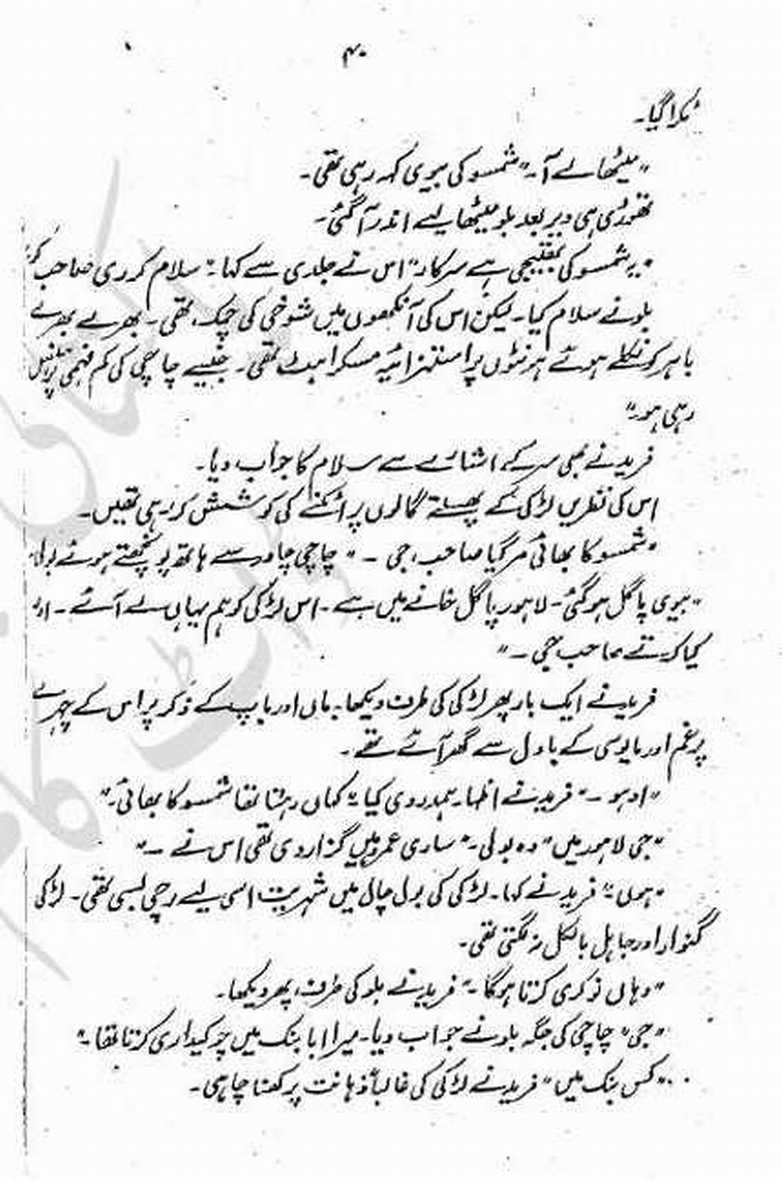 ۴۰
ٹکرا گیا۔
"میٹھا لے آ۔" شمسو کی بیوی کہہ رہی تھی۔
تھوڑی ہی دیر بعد بلو میٹھا لیے اندر آ گئی۔
"یہ شمسو کی بھتیجی ہے سرکار" اس نے جلدی سے کہا۔ "سلام کر ری صاحب کو"
بلو نے سلام کیا۔ لیکن اس کی آنکھوں میں شوخی کی چمک تھی۔ بھرے بھرے
باہر کو نکلے ہوئے ہونٹوں پر استہزائیہ مسکراہٹ تھی۔ جیسے چاچی کی کم فہمی پر
رہی ہو۔"
فرید نے بھی سر کے اشارے سے سلام کا جواب دیا۔
اس کی نظریں لڑکی کے پھسلتے گالوں پر اٹکنے کی کوشش کر رہی تھیں۔
"شمسو کا بھائی مر گیا صاحب جی ۔" چاچی چادر سے ہاتھ پونچھتے ہوئے بولی
"بیوی پاگل ہو گئی۔ لاہور پاگل خانے میں ہے۔ اس لڑکی کو ہم یہاں لے آئے۔ اور
کیا کرتے صاحب جی ۔"
فرید نے ایک بار پھر لڑکی کی طرف دیکھا۔ ماں اور باپ کے ذکر پر اس کے چہرے
پر غم اور مایوسی کے بادل سے گھر آئے تھے۔
"اوہو ۔" فرید نے اظہار ہمدردی کیا۔ "کہاں رہتا تھا شمسو کا بھائی۔"
"جی لاہور میں" وہ بولی۔ "ساری عمر وہیں گزار دی تھی اس نے ۔"
"ہوں۔" فرید نے کہا۔ لڑکی کی بول چال میں شہریت اسی لیے رچی بسی تھی۔ لڑکی
گنوار اور جاہل بالکل نہ لگتی تھی۔
"وہاں نوکری کرتا ہو گا۔" فرید نے بلو کی طرف پھر دیکھا۔
"جی" چاچی کی جگہ بلو نے جواب دیا۔ میرا ابا بنک میں چوکیداری کرتا تھا۔"
"کس بنک میں" فرید نے لڑکی کی غالباً ذہانت پرکھنا چاہی۔